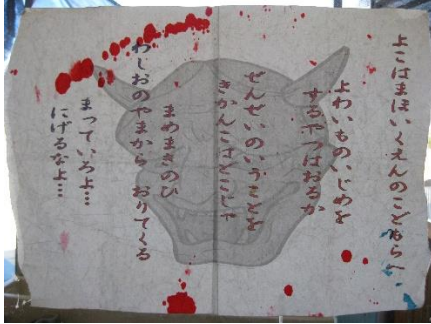 よこはまほいくえんのこどもらへ
よわいものいじめを
するやつはおるか
せんせいのいうことを
きかんこはどこじゃ
まめまきのひ
わしおのやまから おりてくる
まっていろよ…
にげるなよ…